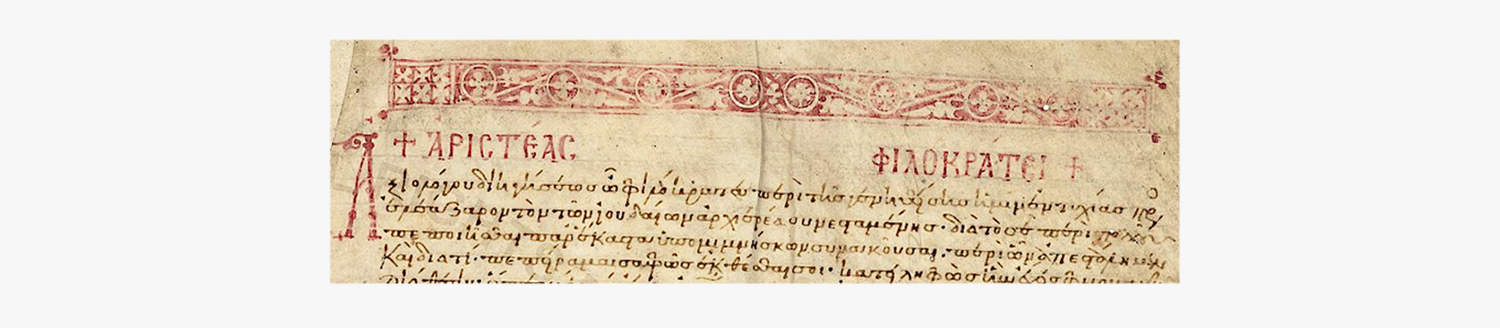 + ἈΡΙCΤΈΑC ΦΙΛΟΚΡΆΤΕΙ +
Ἀξιολόγου διηγήσεως ὦ φιλόκρατες περὶ τῆς γενηθείσης ἡμῖν ἐντυχίας πρὸς
ἐλεάζαρον τὸν τῶν ἰουδαίων ἀρχιερέα συνεσταμένης· διὰ τὸ σὲ περὶ πολλοῦ
πεποιῆσθαι παρ' ἕκαστα ὑπομιμνήσκων συνακοῦσαι· περὶ ὧν ἀπεστάλημεν
Καὶ διὰ τί· πεπείραμαι σαφῶς ἐκθέσθαι σοι· κατειληφὼς ἣν ἔχεις φιλομαθῆ